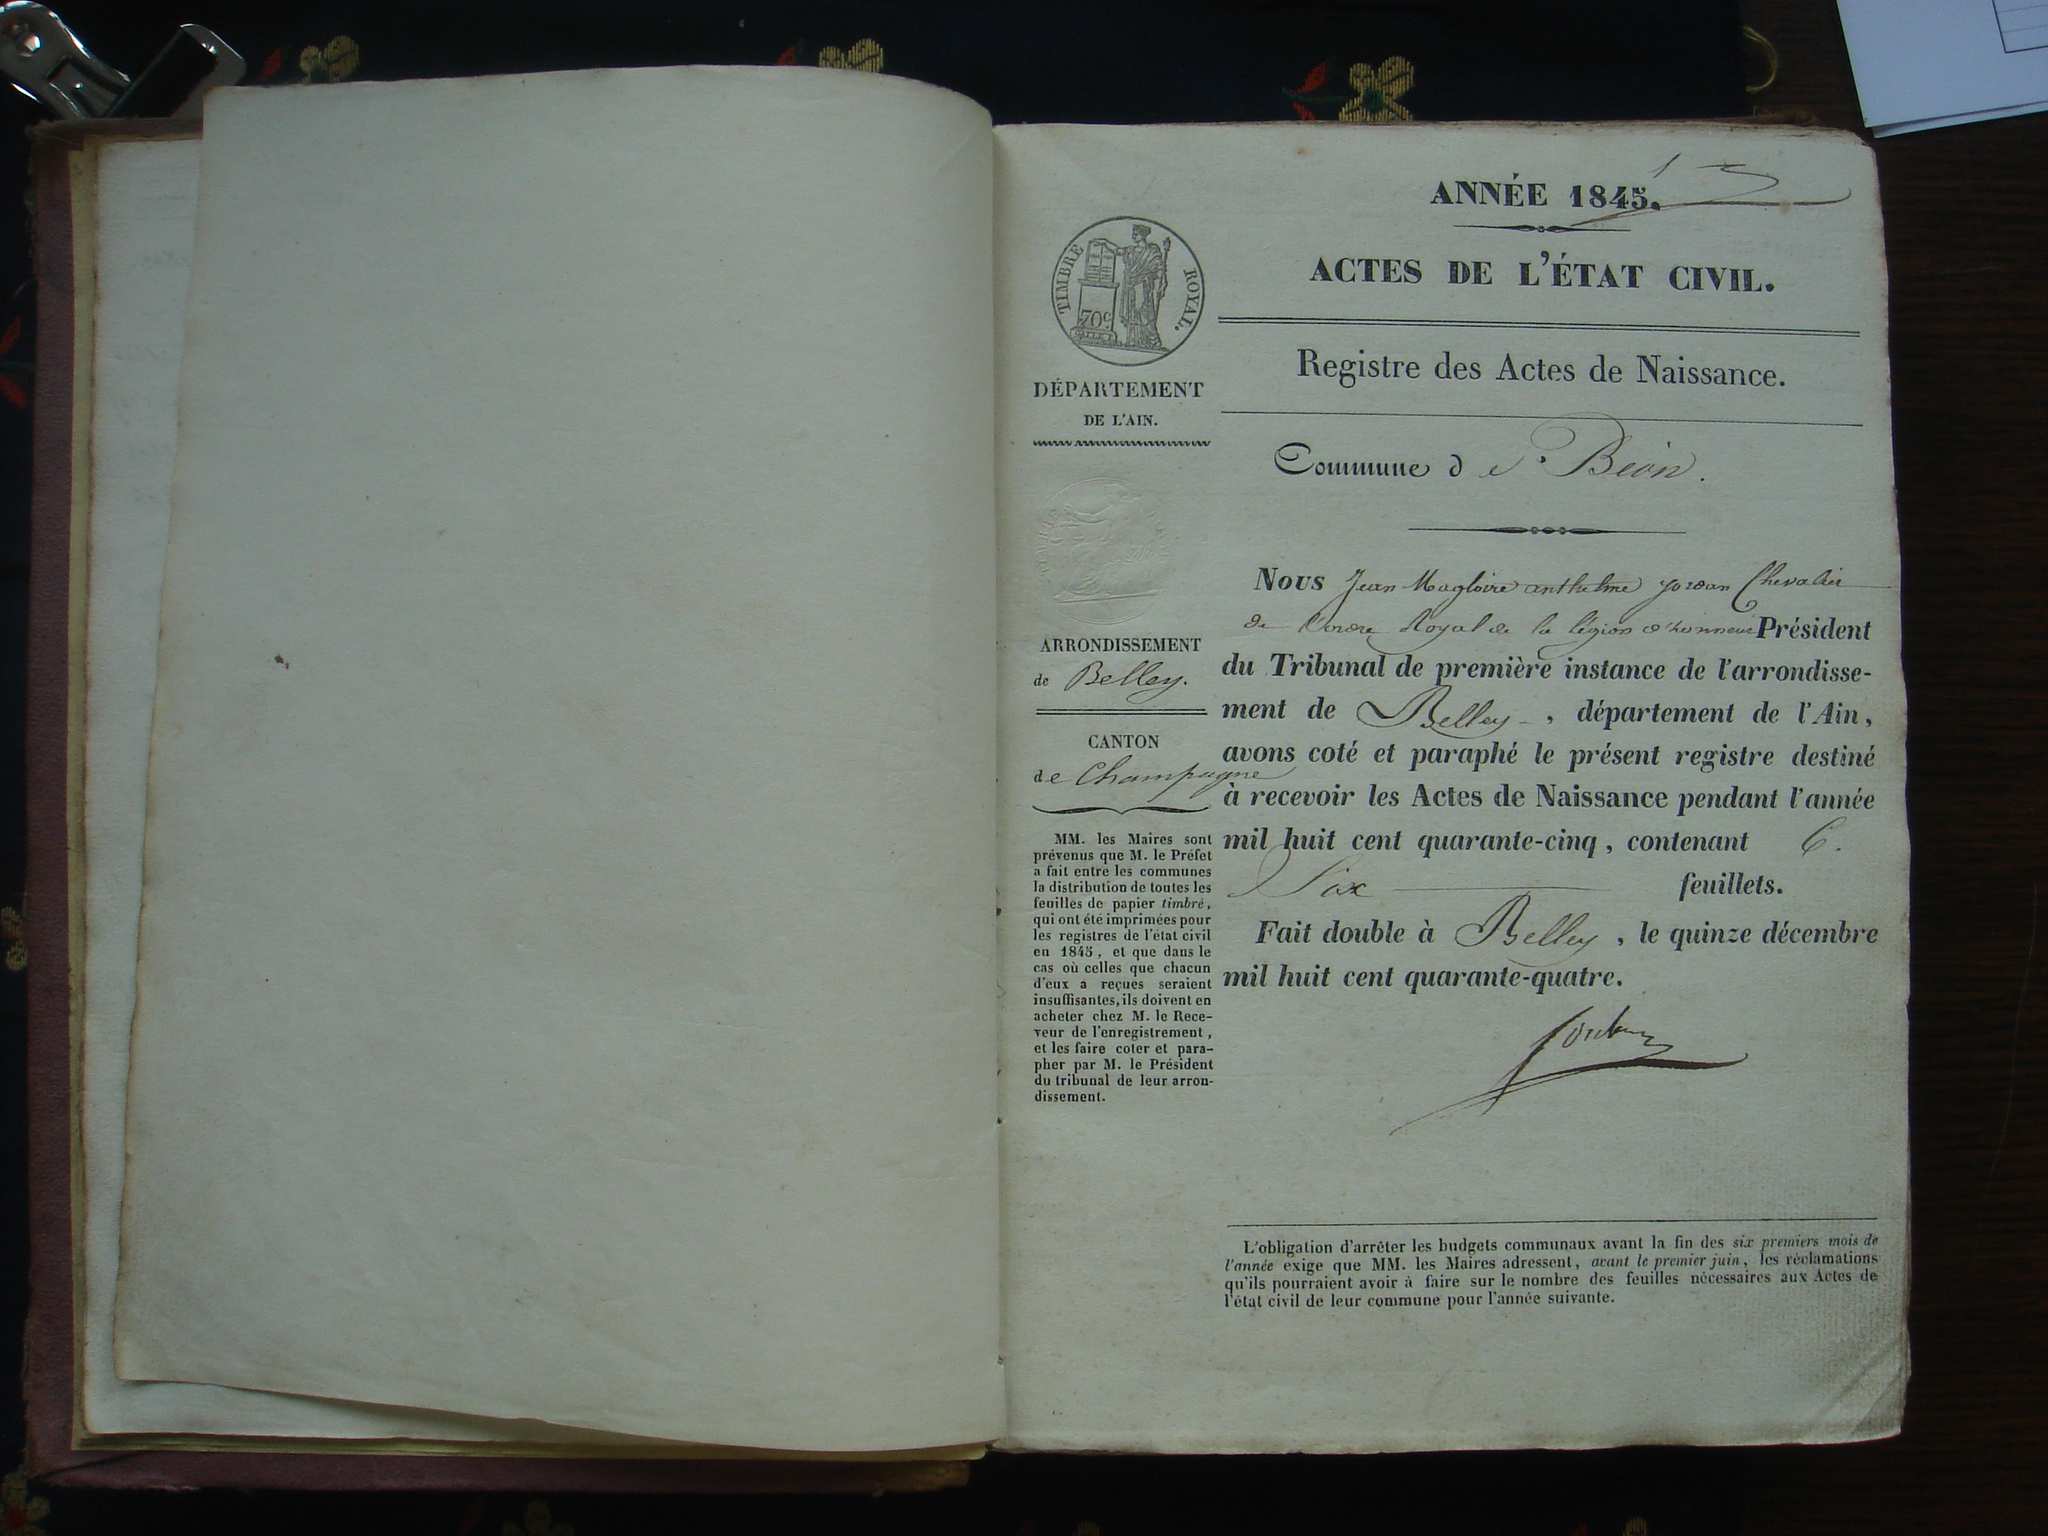 ANNÉE 1845.
ACTES DE L'ÉTAT CIVIL.
Registre des Actes de Naissance.
Commune de Béon.
TIMBRE ROYAL.
70c
DÉPARTEMENT
DE L'AIN.
ARRONDISSEMENT
de Belley.
CANTON
de Champagne
MM. les Maires sont
prévenus que M. le Préfet
a fait entre les communes
la distribution de toutes les
feuilles de papier timbré,
qui ont été imprimées pour
les registres de l'état civil
en 1845, et que dans le
cas où celles que chacun
d'eux a reçues seraient
insuffisantes, ils doivent en
acheter chez M. le Rece-
veur de l'enregistrement,
et les faire coter et para-
pher par M. le Président
du tribunal de leur arron-
dissement.
Nous Jean Magloire anthelme jordan Chevalier
de l'ordre Royal de la légion d'honneur Président
du Tribunal de première instance de l'arrondisse-
ment de Belley, département de l'Ain,
avons coté et paraphé le présent registre destiné
à recevoir les Actes de Naissance pendant l'année
mil huit cent quarante-cinq, contenant 6.
Six feuillets.
Fait double à Belley, le quinze décembre
mil huit cent quarante-quatre.
Jordan
L'obligation d'arrêter les budgets communaux avant la fin des six premiers mois de
l'année exige que MM. les Maires adressent, avant le premier juin, les réclamations
qu'ils pourraient avoir à faire sur le nombre des feuilles nécessaires aux Actes de
l'état civil de leur commune pour l'année suivante.